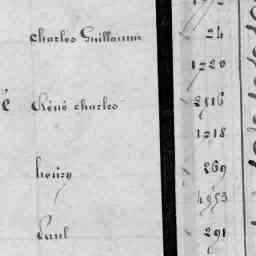 Charles Guillaume 24
1220
Réné Charles 2816
1218
henry 269
4953
Paul 291